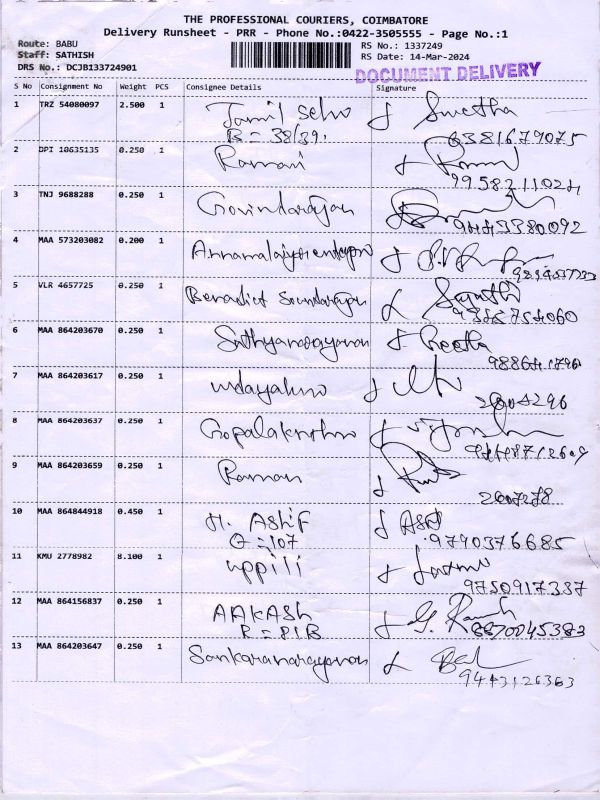 THE PROFESSIONAL COURIERS, COIMBATORE
Delivery Runsheet - PRR - Phone No.:0422-3505555 - Page No.:1
Route: BABU
RS No.: 1337249
Staff: SATHISH
RS Date: 14-Mar-2024
DRS No.: DCJB133724901
DOCUMENT DELIVERY
S No Consignment No Weight PCS Consignee Details Signature
1 TRZ 54080097 2.500 1 Tamil Selvo Swetha
B = 38/39. 6381679075
2 DPI 10635135 0.250 1 Ramani
9958211024
3 TNJ 9688288 0.250 1 Govindarajan
9443380092
4 MAA 573203082 0.200 1
5 VLR 4657725 0.250 1 Benedict Soundarajan
6 MAA 864203670 0.250 1 Sathyanarayanan Geetha
7 MAA 864203617 0.250 1 udayakumar
2604296
8 MAA 864203637 0.250 1 Gopalakrishna
9 MAA 864203659 0.250 1 Raman
10 MAA 864844918 0.450 1 H. ASHIF
G = 107 9790376685
11 KMU 2778982 8.100 1 uppili
9750917387
12 MAA 864156837 0.250 1 AAKASH
R = 81B 8870045383
13 MAA 864203647 0.250 1 Sankaranarayanan
9443126363